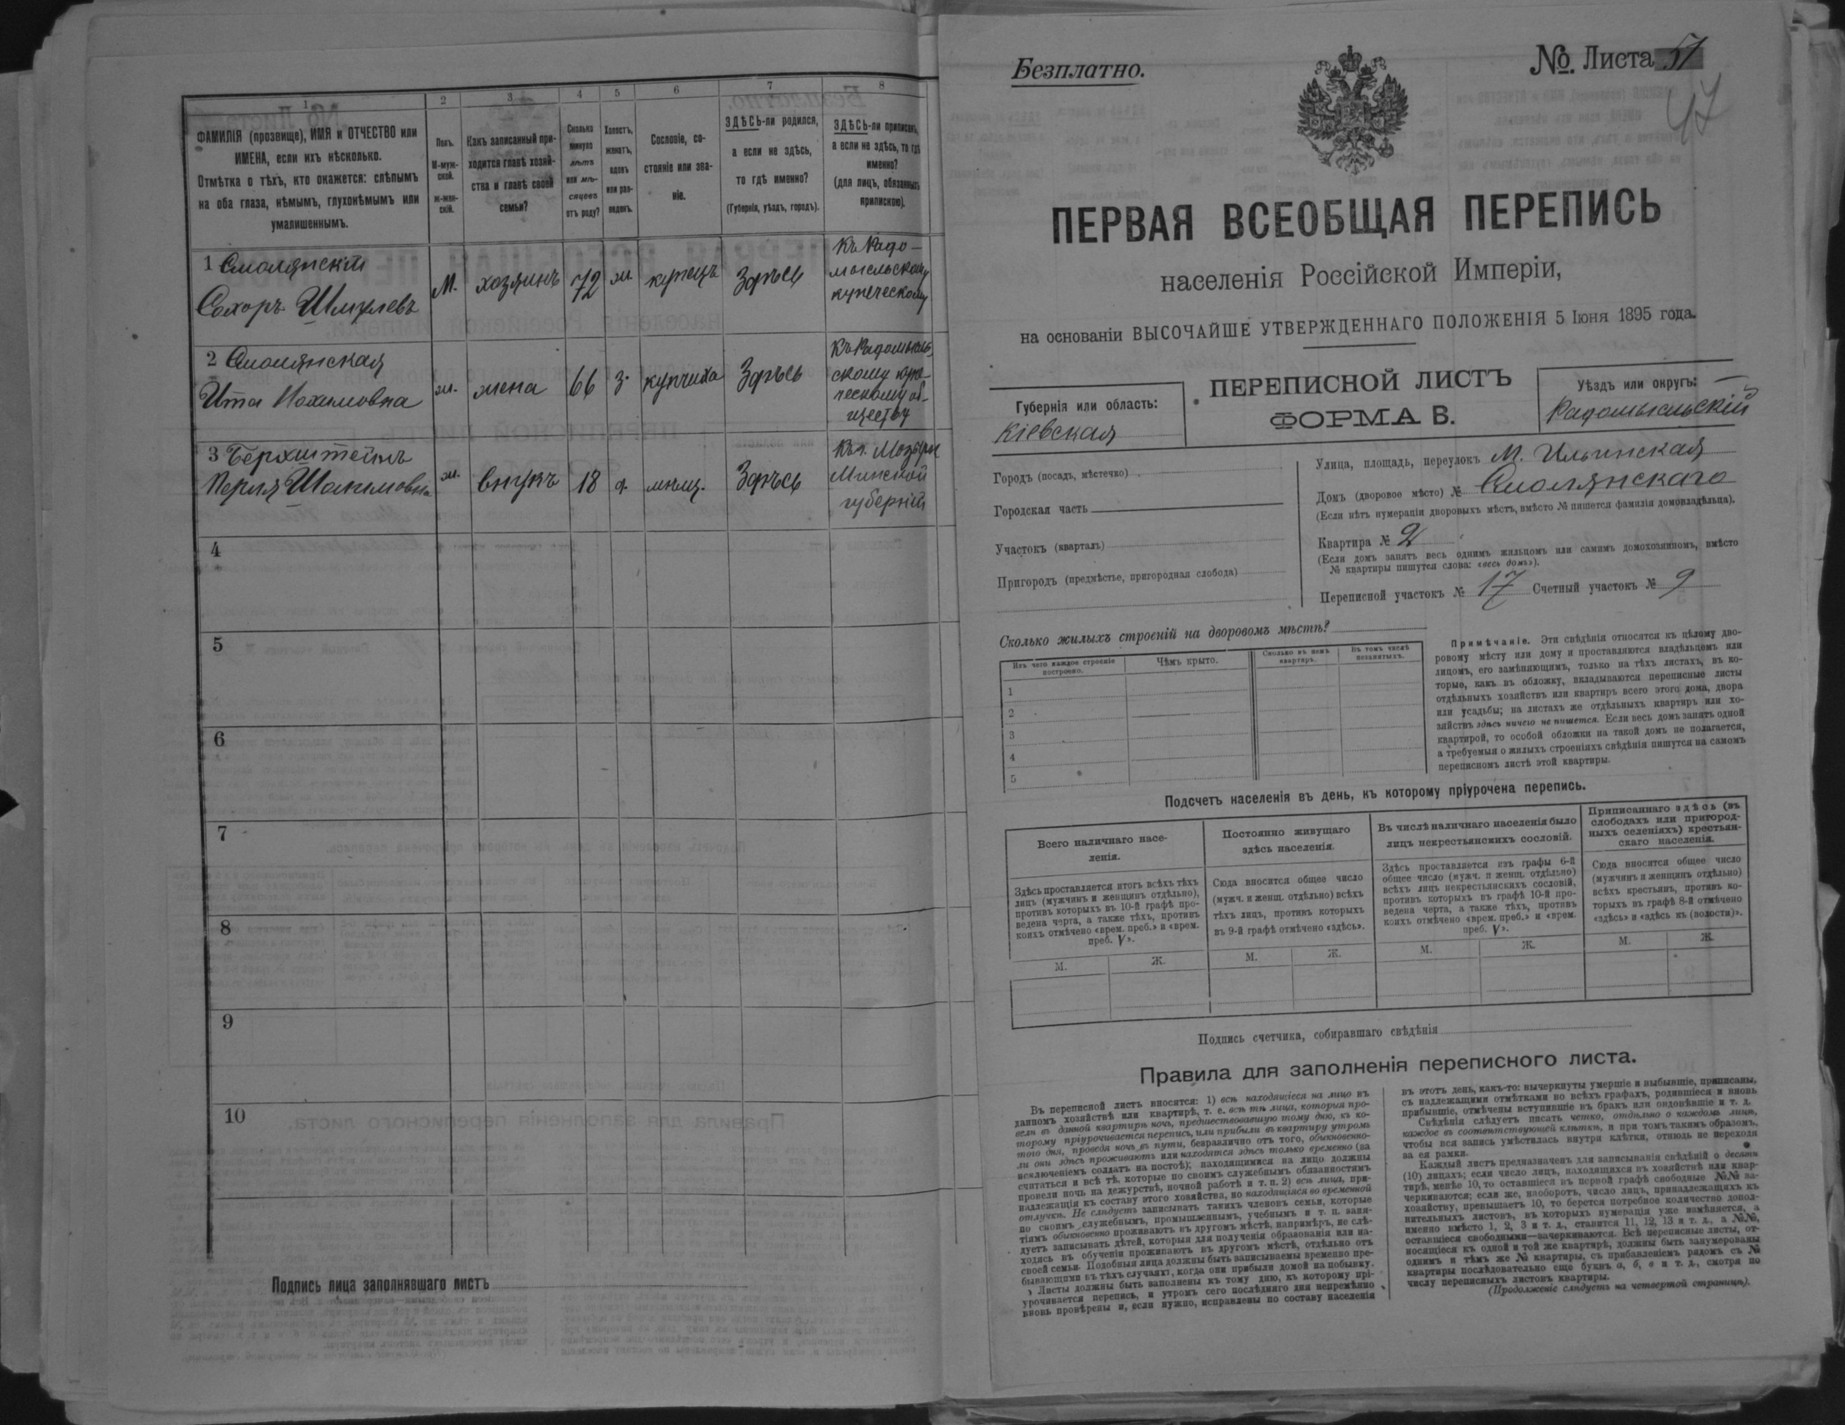 1
2
3
4
5
6
7
8
ФАМИЛІЯ (прозвище), ИМЯ и ОТЧЕСТВО или
ИМЕНА, если ихъ нѣсколько.
Отмѣтка о тѣхъ, кто окажется: слѣпымъ
на оба глаза, нѣмымъ, глухонѣмымъ или
умалишеннымъ.
Полъ.
М-муж-
ской.
ж-жен-
скій.
Какъ записанный при-
ходится главѣ хозяй-
ства и главѣ своей
семьи?
Сколько
минуло
лѣтъ
или мѣ-
сяцевъ
отъ роду?
Холостъ,
женатъ,
вдовъ
или раз-
веденъ.
Сословіе, со-
стояніе или зва-
ніе.
ЗДѢСЬ-ли родился,
а если не здѣсь,
то гдѣ именно?
(Губернія, уѣздъ, городъ).
ЗДѢСЬ-ли приписанъ,
а если не здѣсь, то гдѣ
именно?
(для лицъ, обязанныхъ
припискою).
1 Смолянскій
Сохоръ Шмулевъ
М.
хозяинъ
72
ж
купецъ
Здѣсь
Къ Радо-
мысльскому
купеческому
2 Смолянская
Ита Нохимовна
ж.
жена
66
з.
купчиха
Здѣсь
Къ Радомысль-
скому купе-
ческому об-
ществу
3 Берхштейнъ
Перля
ж.
внукъ
18
д.
мѣщ.
Здѣсь
Къ г. Мозырю
Минской
губерніи
4
5
6
7
8
9
10
Подпись лица заполнявшаго листъ
Безплатно.
№ Листа 57
47
ПЕРВАЯ ВСЕОБЩАЯ ПЕРЕПИСЬ
населенія Россійской Имперіи,
на основаніи ВЫСОЧАЙШЕ УТВЕРЖДЕННАГО ПОЛОЖЕНІЯ 5 Іюня 1895 года.
Губернія или область:
Кіевская
ПЕРЕПИСНОЙ ЛИСТЪ
ФОРМА В.
Уѣздъ или округъ:
Радомысльскій
Городъ (посадъ, мѣстечко)
Городская часть
Участокъ (кварталъ)
Пригородъ (предмѣстье, пригородная слобода)
Улица, площадь, переулокъ М. Ильинская
Домъ (дворовое мѣсто) № Смолянскаго
(Если нѣтъ нумераціи дворовыхъ мѣстъ, вмѣсто № пишется фамилія домовладѣльца).
Квартира № 2
(Если домъ занятъ весь однимъ жильцомъ или самимъ домохозяиномъ, вмѣсто
№ квартиры пишутся слова: «весь домъ»).
Переписной участокъ № 17 Счетный участокъ № 9
Сколько жилыхъ строеній на дворовомъ мѣстѣ?
Изъ чего каждое строеніе
построено.
Чѣмъ крыто.
Сколько въ немъ
квартиръ.
Въ томъ числѣ
незанятыхъ.
1
2
3
4
5
Примѣчаніе. Эти свѣдѣнія относятся къ цѣлому дво-
ровому мѣсту или дому и проставляются владѣльцемъ или
лицомъ, его замѣняющимъ, только на тѣхъ листахъ, въ ко-
торые, какъ въ обложку, вкладываются переписные листы
отдѣльныхъ хозяйствъ или квартиръ всего этого дома, двора
или усадьбы; на листахъ же отдѣльныхъ квартиръ или хо-
зяйствъ здѣсь ничего не пишется. Если весь домъ занятъ одной
квартирой, то особой обложки на такой домъ не полагается,
а требуемыя о жилыхъ строеніяхъ свѣдѣнія пишутся на самомъ
переписномъ листѣ этой квартиры.
Подсчетъ населенія въ день, къ которому пріурочена перепись.
Всего наличнаго насе-
ленія.
Здѣсь проставляется итогъ всѣхъ тѣхъ
лицъ (мужчинъ и женщинъ отдѣльно),
противъ которыхъ въ 10-й графѣ про-
ведена черта, а также тѣхъ, противъ
коихъ отмѣчено «врем. преб.» и «врем.
преб. V».
Постоянно живущаго
здѣсь населенія.
Сюда вносится общее число
(мужч. и женщ. отдѣльно) всѣхъ
тѣхъ лицъ, противъ которыхъ
въ 9-й графѣ отмѣчено «здѣсь».
Въ числѣ наличнаго населенія было
лицъ некрестьянскихъ сословій.
Здѣсь проставляется изъ графы 6-й
общее число (мужч. и женщ. отдѣльно)
всѣхъ лицъ некрестьянскихъ сословій,
противъ которыхъ въ графѣ 10-й про-
ведена черта, а также тѣхъ, противъ
коихъ отмѣчено «врем. преб.» и «врем.
преб. V».
Приписаннаго здѣсь (въ
слободахъ или пригород-
ныхъ селеніяхъ) крестьян-
скаго населенія.
Сюда вносится общее число
(мужчинъ и женщинъ отдѣльно)
всѣхъ крестьянъ, противъ ко-
торыхъ въ графѣ 8-й отмѣчено
«здѣсь» и «здѣсь къ (волости)».
М. Ж. М. Ж. М. Ж. М. Ж.
Подпись счетчика, собиравшаго свѣдѣнія
Правила для заполненія переписного листа.
Въ переписной листъ вносятся: 1) всѣ находящіеся на лицо въ
данномъ хозяйствѣ или квартирѣ, т. е. всѣ тѣ лица, которыя про-
вели въ данной квартирѣ ночь, предшествовавшую тому дню, къ ко-
торому пріурочивается перепись, или прибыли въ квартиру утромъ
того дня, проведя ночь въ пути, безразлично отъ того, обыкновенно-
ли они здѣсь проживаютъ или находятся здѣсь только временно (за
исключеніемъ солдатъ на постоѣ); находящимися на лицо должны
считаться и всѣ тѣ, которые по своимъ служебнымъ обязанностямъ
провели ночь на дежурствѣ, ночной работѣ и т. п. 2) всѣ лица, при-
надлежащія къ составу этого хозяйства, но находящіяся во временной
отлучкѣ. Не слѣдуетъ записывать такихъ членовъ семьи, которые
по своимъ служебнымъ, промышленнымъ, учебнымъ и т. п. заня-
тіямъ обыкновенно проживаютъ въ другомъ мѣстѣ, напримѣръ, не слѣ-
дуетъ записывать дѣтей, которыя для полученія образованія или на-
ходясь въ обученіи проживаютъ въ другомъ мѣстѣ, отдѣльно отъ
своей семьи. Подобныя лица должны быть записываемы временно пре-
бывающими въ тѣхъ случаяхъ, когда они прибыли домой на побывку.
Листы должны быть заполнены къ тому дню, къ которому прі-
урочивается перепись, и утромъ сего послѣдняго дня непремѣнно
вновь провѣрены и, если нужно, исправлены по составу населенія
въ этотъ день, какъ-то: вычеркнуты умершіе и выбывшіе, приписаны,
съ надлежащими отмѣтками во всѣхъ графахъ, родившіеся и вновь
прибывшіе, отмѣчены вступившіе въ бракъ или овдовѣвшіе и т. д.
Свѣдѣнія слѣдуетъ писать четко, отдѣльно о каждомъ лицѣ,
каждое въ соотвѣтствующей клѣткѣ, и при томъ такимъ образомъ,
чтобы вся запись умѣстилась внутри клѣтки, отнюдь не переходя
за ея рамки.
Каждый листъ предназначенъ для записыванія свѣдѣній о десяти
(10) лицахъ; если число лицъ, находящихся въ хозяйствѣ или квар-
тирѣ, менѣе 10, то оставшіеся въ первой графѣ свободные №№ за-
черкиваются; если же, наоборотъ, число лицъ, принадлежащихъ къ
хозяйству, превышаетъ 10, то берется потребное количество допол-
нительныхъ листовъ, въ которыхъ нумерація уже измѣняется, а
именно вмѣсто 1, 2, 3 и т. д., ставится 11, 12, 13 и т. д., а №№,
оставшіеся свободными—зачеркиваются. Всѣ переписные листы, от-
носящіеся къ одной и той же квартирѣ, должны быть занумерованы
однимъ и тѣмъ же № квартиры, съ прибавленіемъ рядомъ съ №
квартиры послѣдовательно еще буквъ а, б, в и т. д., смотря по
числу переписныхъ листовъ квартиры.
(Продолженіе слѣдуетъ на четвертой страницѣ).